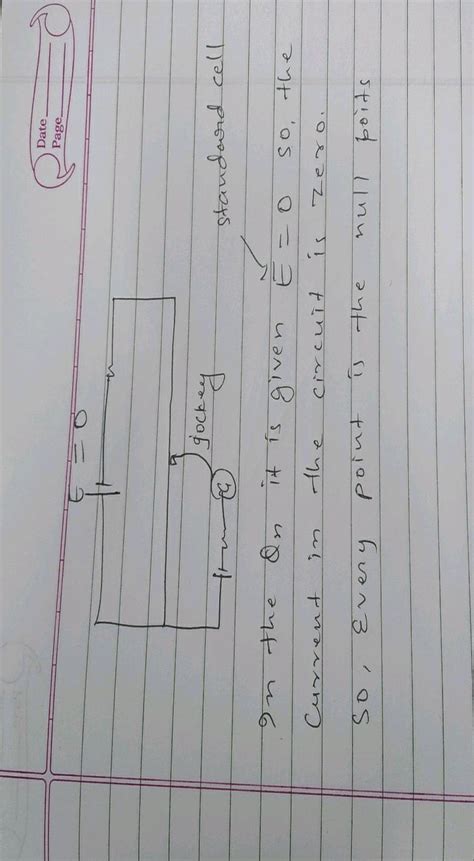 Date
Page
E = 0
jockey
G
standard cell
In the Qn it is given E = 0 so, the
Current in the circuit is zero.
So, Every point is the null poits